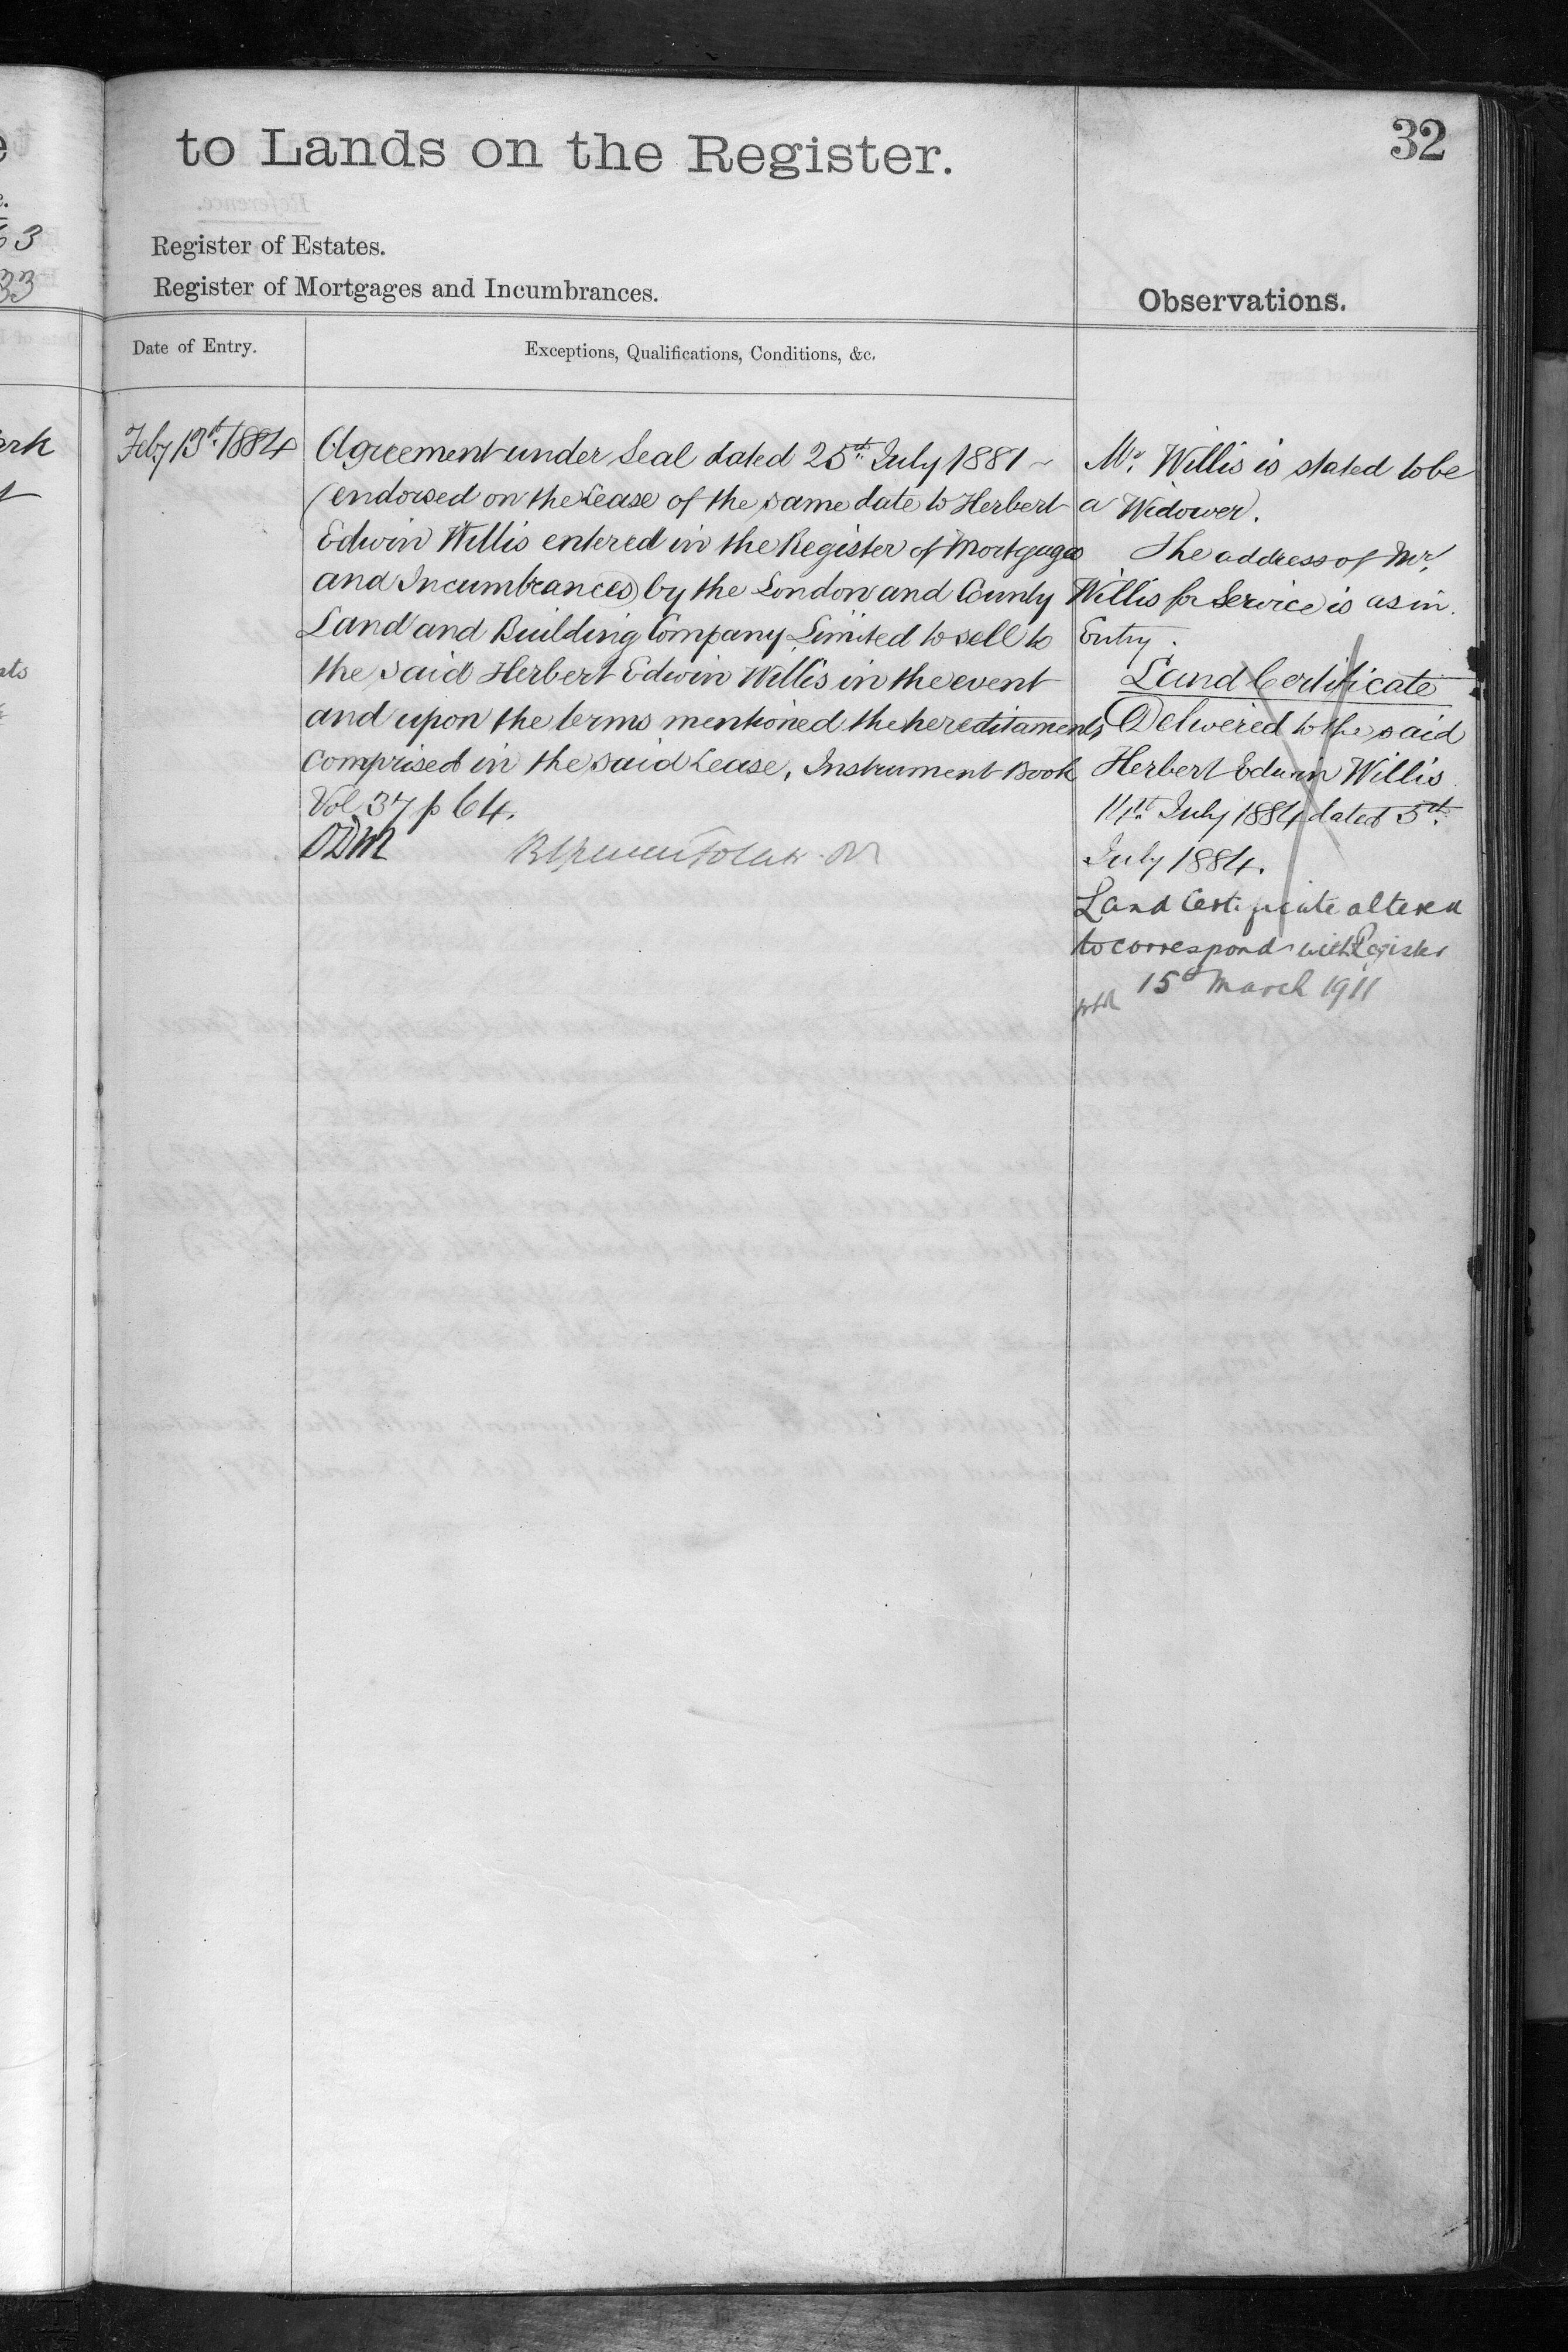 to Lands on the Register.
32
Register of Estates.
Register of Mortgages and Incumbrances.
Observations.
Date of Entry.
Exceptions, Qualifications, Conditions, &c.
63
33
ark
Feby 13th 1884
Agreement under Seal dated 25th July 1881 ~
(endorsed on the Lease of the same date to Herbert
Edwin Willis entered in the Register of Mortgages
and Incumbrances) by the London and County
Land and Building Company Limited to sell to
the said Herbert Edwin Willis in the event
and upon the terms mentioned the hereditaments
comprised in the said Lease. Instrument Book
Vol 37 p 64.
Mr. Willis is stated to be
a Widower.
The address of Mr.
Willis for Service is as in
Entry.
Land Certificate
Delivered to the said
Herbert Edwin Willis
14th July 1884 dated 5th
July 1884.
Land Certificate altered
to correspond with Register
15th March 1911